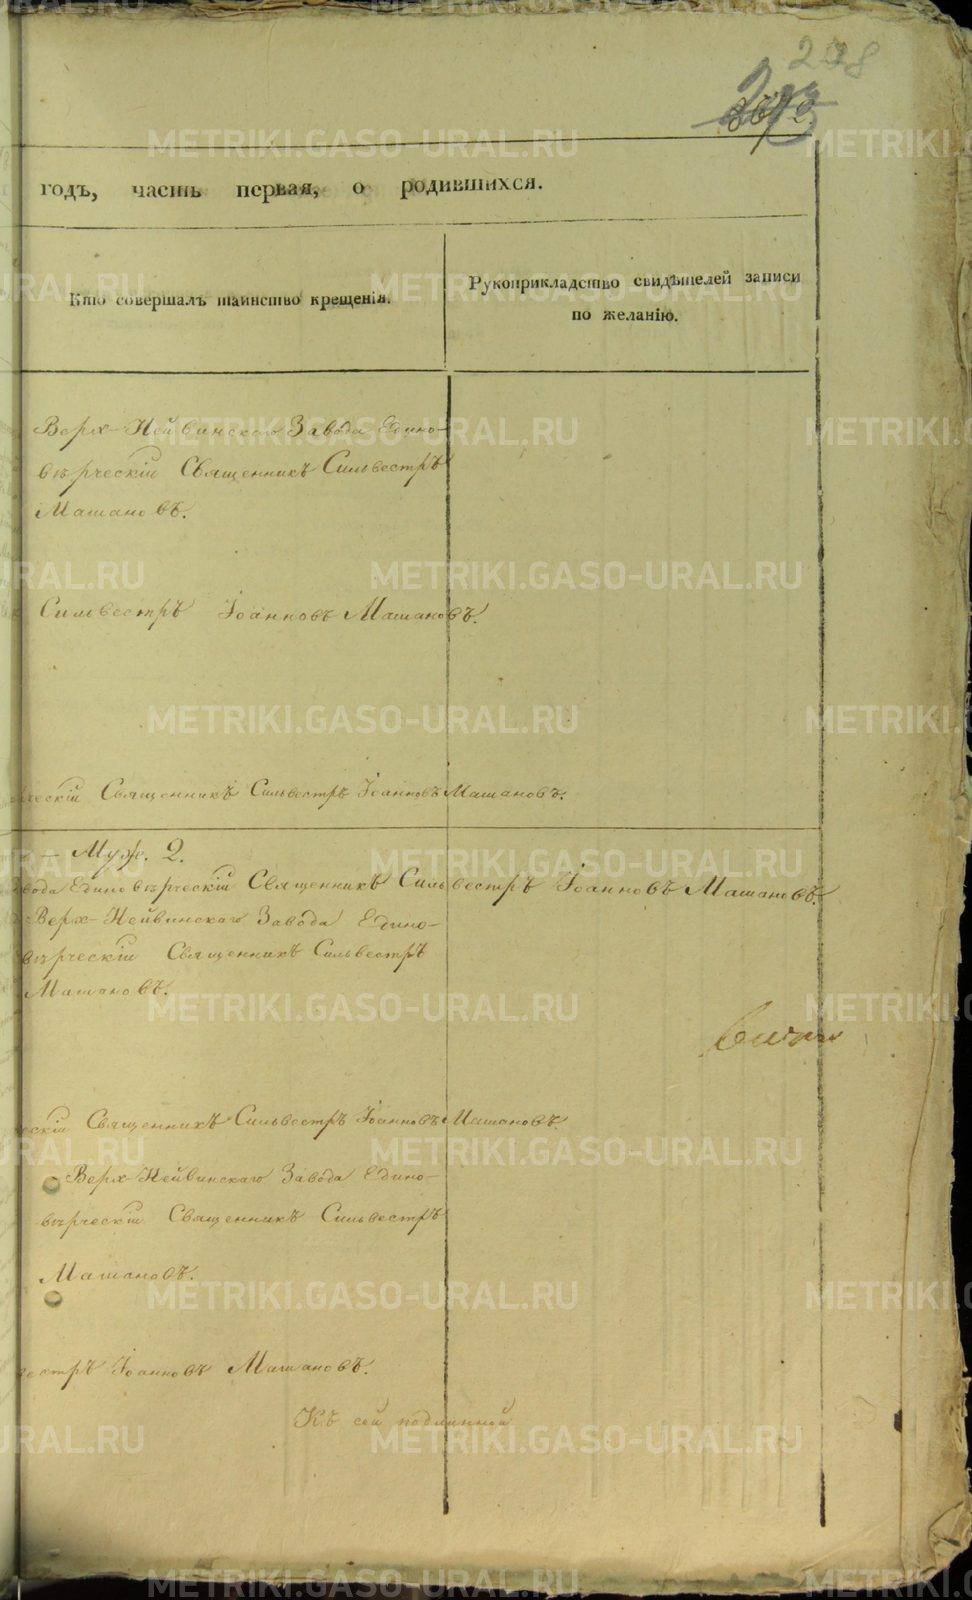 208
годъ, часть первая, о родившихся.
Кто совершалъ таинство крещенія.
Рукоприкладство свидѣтелей записи
по желанію.
Верх-Нейвинскаго Завода Едино-
вѣрческій Священникъ Сильвестръ
Машановъ.
Сильвестръ Іоанновъ Машановъ.
ческій Священникъ Сильвестръ Іоанновъ Машановъ.
— Муж. 2.
вода Единовѣрческій Священникъ Сильвестръ Іоанновъ Машановъ.
Верх-Нейвинскаго Завода Едино-
вѣрческій Священникъ Сильвестръ
Машановъ.
ческій Священникъ Сильвестръ Іоанновъ Машановъ.
Верх-Нейвинскаго Завода Едино-
вѣрческій Священникъ Сильвестръ
Машановъ.
вестръ Іоанновъ Машановъ.
Къ сей подлинной
METRIKI.GASO-URAL.RU